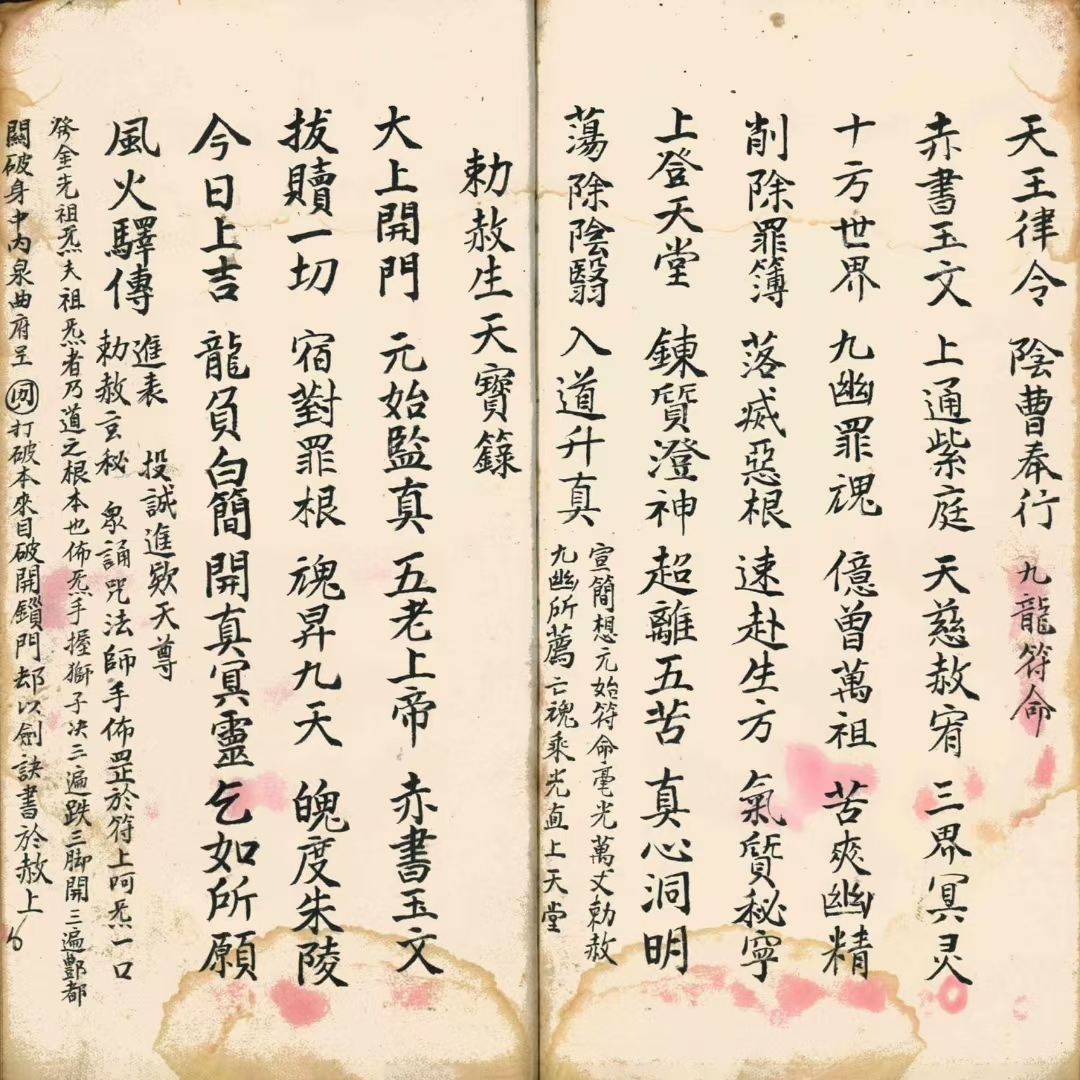 天王律令 陰曹奉行 九龍符命
赤書玉文 上通紫庭 天慈赦宥 三界冥灵
十方世界 九幽罪魂 億曾萬祖 苦爽幽精
削除罪簿 落滅惡根 速赴生方 氣質秘寧
上登天堂 鍊質澄神 超離五苦 真心洞明
蕩除陰翳 入道升真
宣簡想元始符命毫光萬丈勅赦
九幽所薦亡魂乘光直上天堂
勅赦生天寶籙
大上開門 元始監真 五老上帝 赤書玉文
拔贖一切 宿對罪根 魂昇九天 魄度朱陵
今日上吉 龍負白簡 開真冥靈 乞如所願
風火驛傳
進表 投誠進欵天尊
勅赦玄秘 衆誦咒法師手佈罡於符上呵炁一口
祖炁夫祖炁者乃道之根本也佈炁手握獅子决三遍跌三脚開三遍酆都
關破身中內泉曲府呈 㘞 打破本來目破開鎖門却以劍訣書於赦上